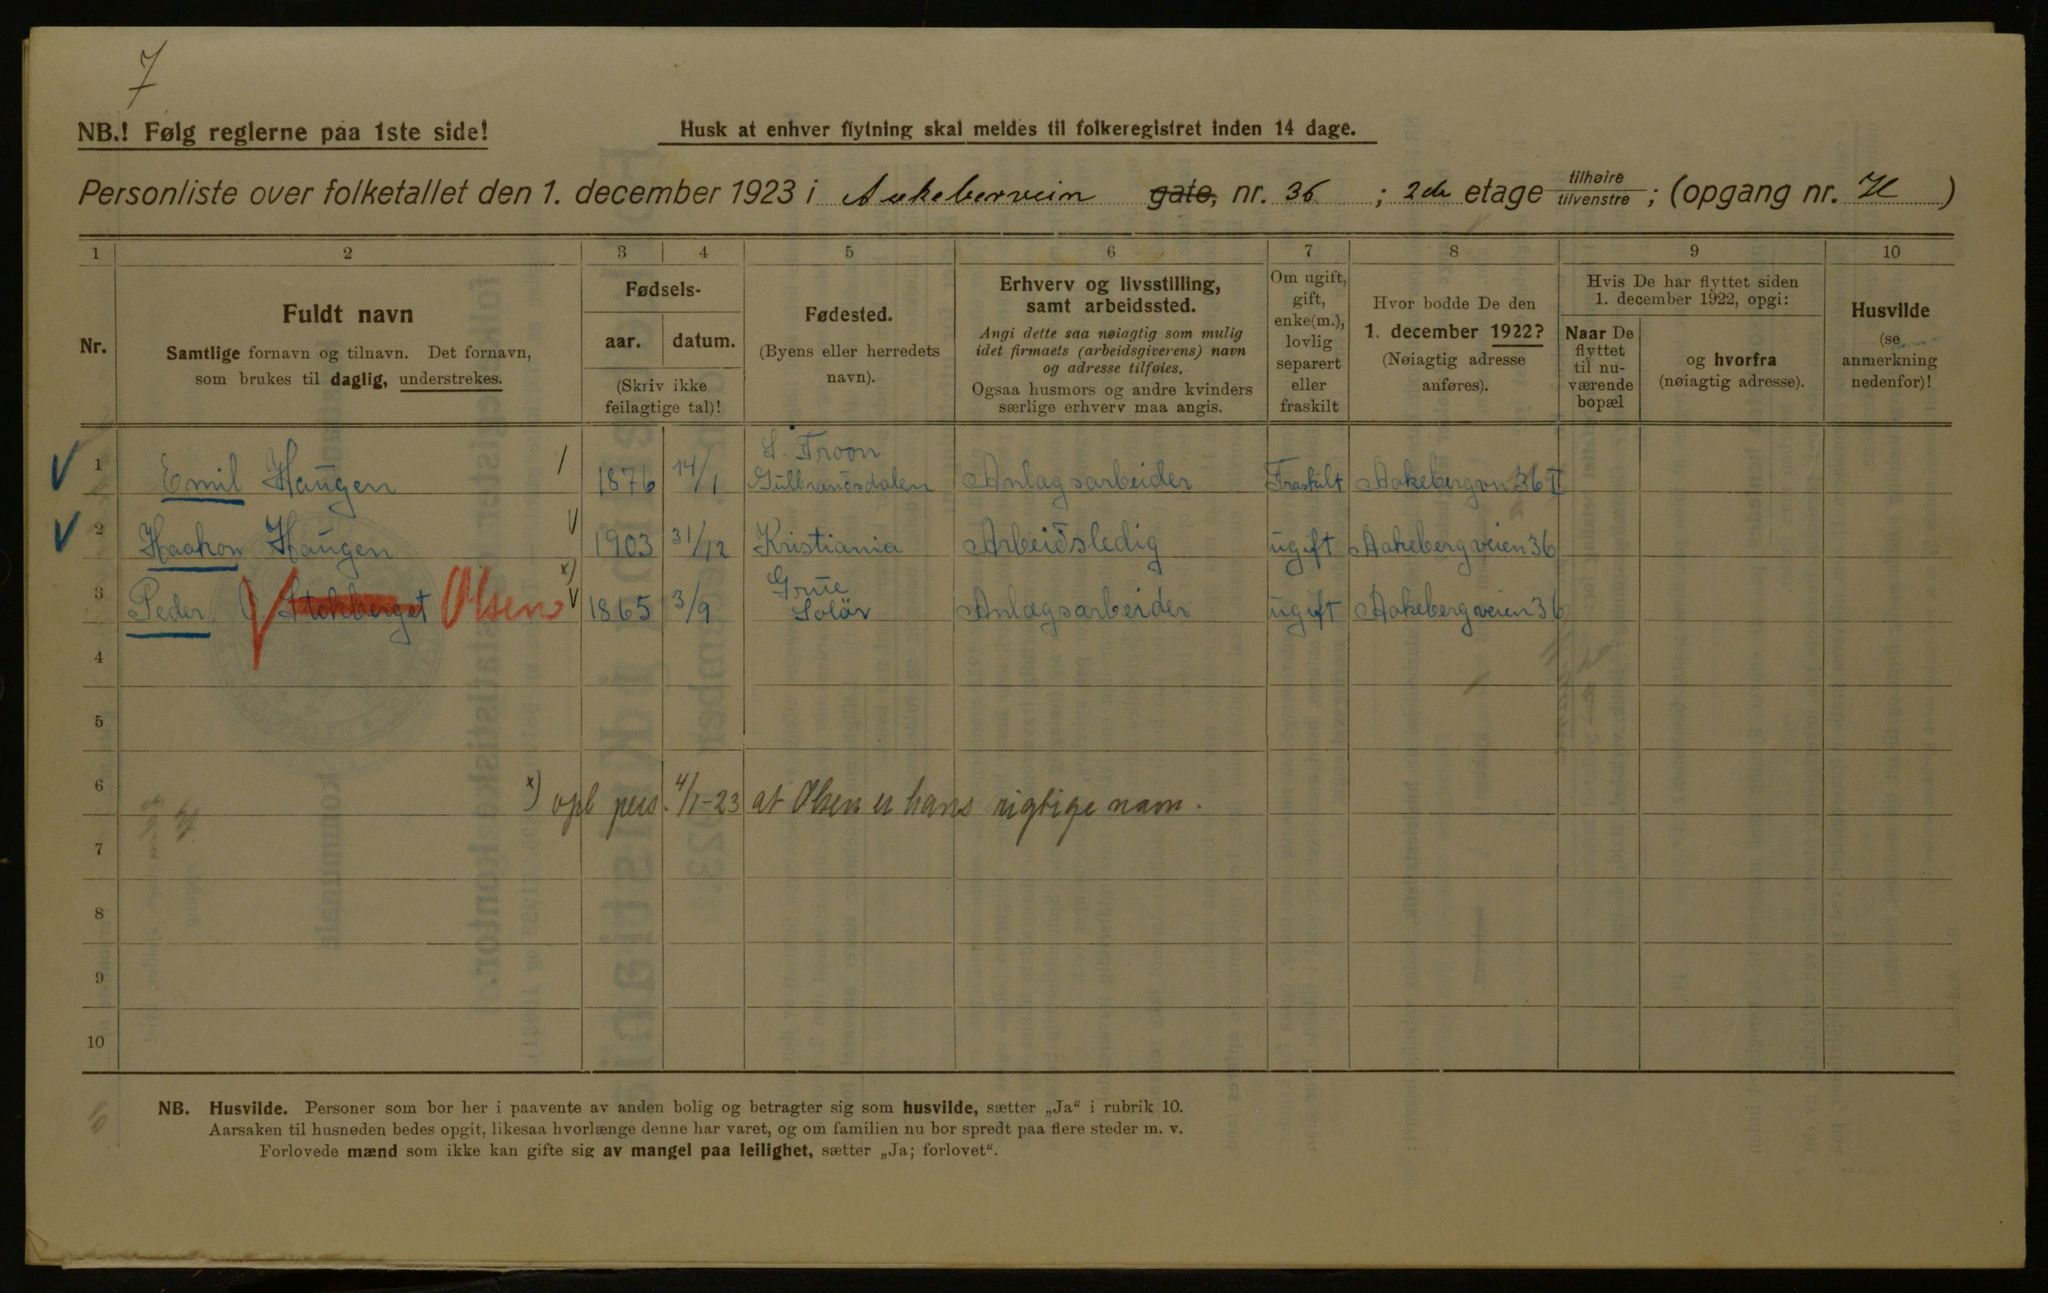 7
NB.! Følg reglerne paa 1ste side!
Husk at enhver flytning skal meldes til folkeregistret inden 14 dage.
Personliste over folketallet den 1. december 1923 i Aakebervein gate, nr. 36 ; 2den etage tilhøire tilvenstre ; (opgang nr. H )
1 2 3 4 5 6 7 8 9 10
Nr.
Fuldt navn
Samtlige fornavn og tilnavn. Det fornavn,
som brukes til daglig, understrekes.
Fødsels-
aar. datum.
(Skriv ikke
feilagtige tal)!
Fødested.
(Byens eller herredets
navn).
Erhverv og livsstilling,
samt arbeidssted.
Angi dette saa nøiagtig som mulig
idet firmaets (arbeidsgiverens) navn
og adresse tilføies.
Ogsaa husmors og andre kvinders
særlige erhverv maa angis.
Om ugift,
gift,
enke(m.),
lovlig
separert
eller
fraskilt
Hvor bodde De den
1. december 1922?
(Nøiagtig adresse
anføres).
Hvis De har flyttet siden
1. december 1922, opgi:
Naar De
flyttet
til nu-
værende
bopæl
og hvorfra
(nøiagtig adresse).
Husvilde
(se
anmerkning
nedenfor)!
1 Emil Haugen 1876 14/1 S. Froon Gulbrandsdalen Anlægsarbeider Fraskilt Aakebergvn 36 II
2 Haakon Haugen 1903 31/12 Kristiania Arbeidsledig ugift Aakebergveien 36
3 Peder Stokberget Olsen x) 1865 3/9 Grue Solör Anlægsarbeider ugift Aakebergveien 36
4
5
6 x) opl pers. 4/1-23 at Olsen er hans rigtige navn.
7
8
9
10
NB. Husvilde. Personer som bor her i paavente av anden bolig og betragter sig som husvilde, sætter „Ja“ i rubrik 10.
Aarsaken til husnøden bedes opgit, likesaa hvorlænge denne har varet, og om familien nu bor spredt paa flere steder m. v.
Forlovede mænd som ikke kan gifte sig av mangel paa leilighet, sætter „Ja; forlovet“.